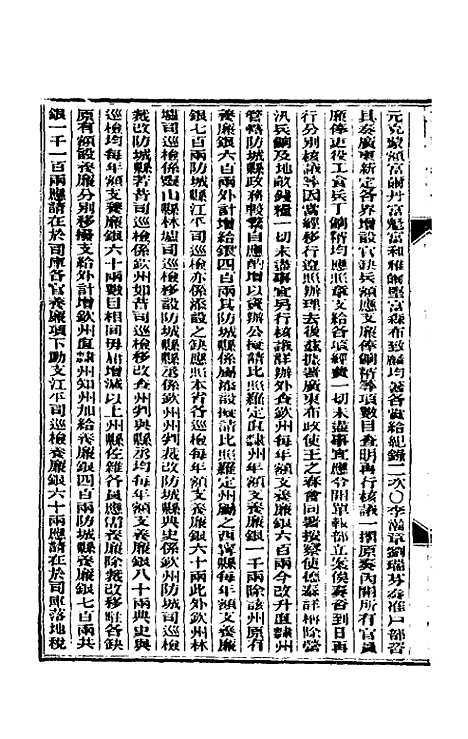 元克蒙額富爾丹富魁富和雅爾堅富森布致麟均著各賞給紀錄二次〇李瀚章劉瑞芬奏准戶部咨
具奏廣東新定各界增設官缺兵額應支廉俸餉糈等項數目查明再行核議一摺原奏內開所有官員
廉俸更役工食兵丁餉糈均應照章支給各項經費一切未盡事宜應分開單報部立案俟奏咨到日再
行分別核議等因當經移行遵照辦理去後茲據署廣東布政使王之春會同署按察使德泰詳稱除營
汛兵餉及地畝錢糧一切未盡事宜另行核議詳辦外查欽州每年額支養廉銀六百兩今改升直隸州
管轄防城縣政務較繁自應酌增以資辦公擬請比照羅定直隸州年額支養廉銀一千兩除該州原有
養廉銀六百兩外計增給銀四百兩其防城縣係屬添設擬請比照羅定州屬之西寧縣每年額支養廉
銀七百兩防城縣江平司巡檢亦係添設之缺應照本省各巡檢每年額支養廉銀六十兩此外欽州林
墟司巡檢係靈山縣林墟司巡檢移設防城縣縣丞係欽州州判裁改防城縣典史係欽州防城司巡檢
裁改防城縣若昔司巡檢係欽州如昔司巡檢移改查州判與縣丞均每年額支養廉銀八十兩典史與
巡檢均每年額支養廉銀六十兩數目相同毋庸增減以上州縣佐雜各員應需養廉除裁改移駐各缺
原有額設養廉分別移撥支給外計增欽州直隸州知州加給養廉銀四百兩防城縣養廉銀七百兩共
銀一千一百兩應請在於司庫各官養廉項下動支江平司巡檢養廉銀六十兩應請在於司庫落地稅